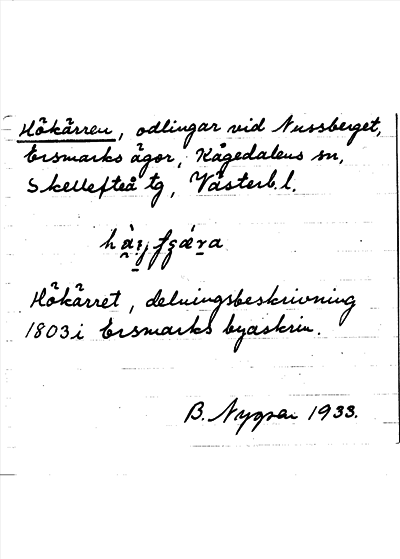 Hökärren, odlingar vid Nussberget,
Ersmarks ägor, Kågedalens sn,
Skellefteå tg, Västerb. l.
Hökärret, delningsbeskrivning
1803 i Ersmarks byaskrin.
B. 1933.